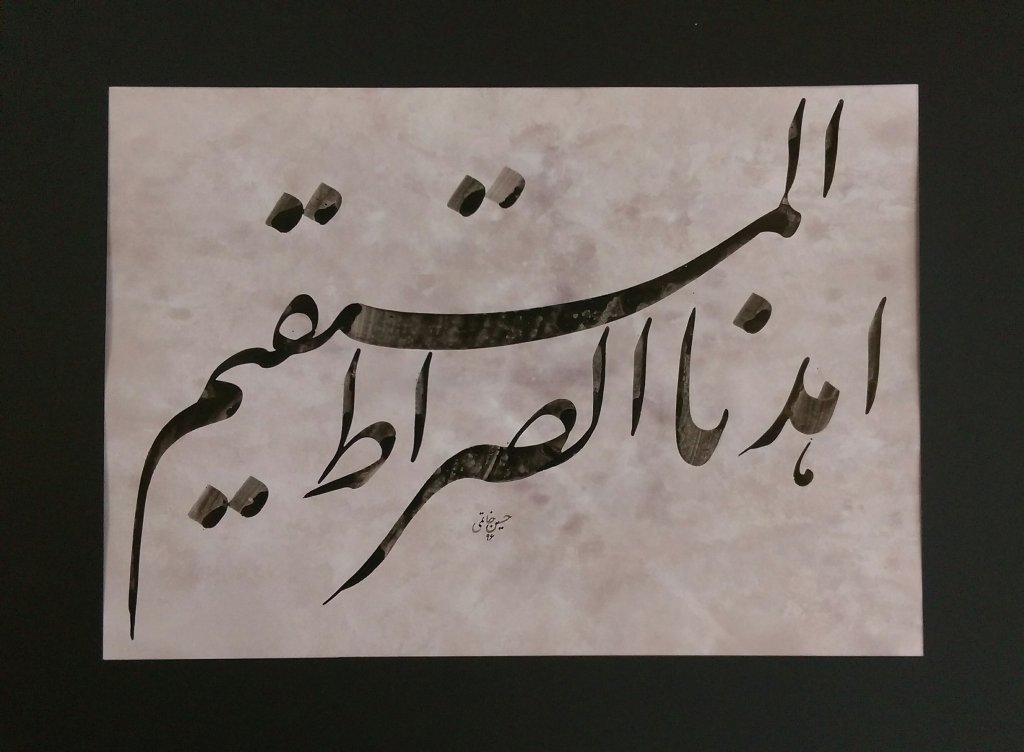 اهدنا الصراط
المستقیم
حسین خاتمی
۹۶